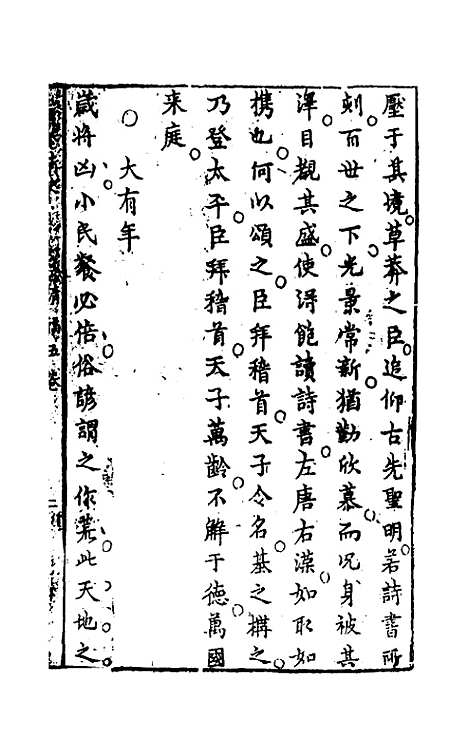 壓于其境草莽之臣追仰古先聖明若詩書所
刻百世之下光景常新猶勸欣慕而况身被其
澤目觀其盛使得飽讀詩書左唐右漢如取如
携也何以頌之臣拜稽首天子令名基之構之
乃登太平臣拜稽首天子萬齡不解于德萬國
来庭
○大有年
歲将凶小民餐必倍俗諺謂之作荒此天地之